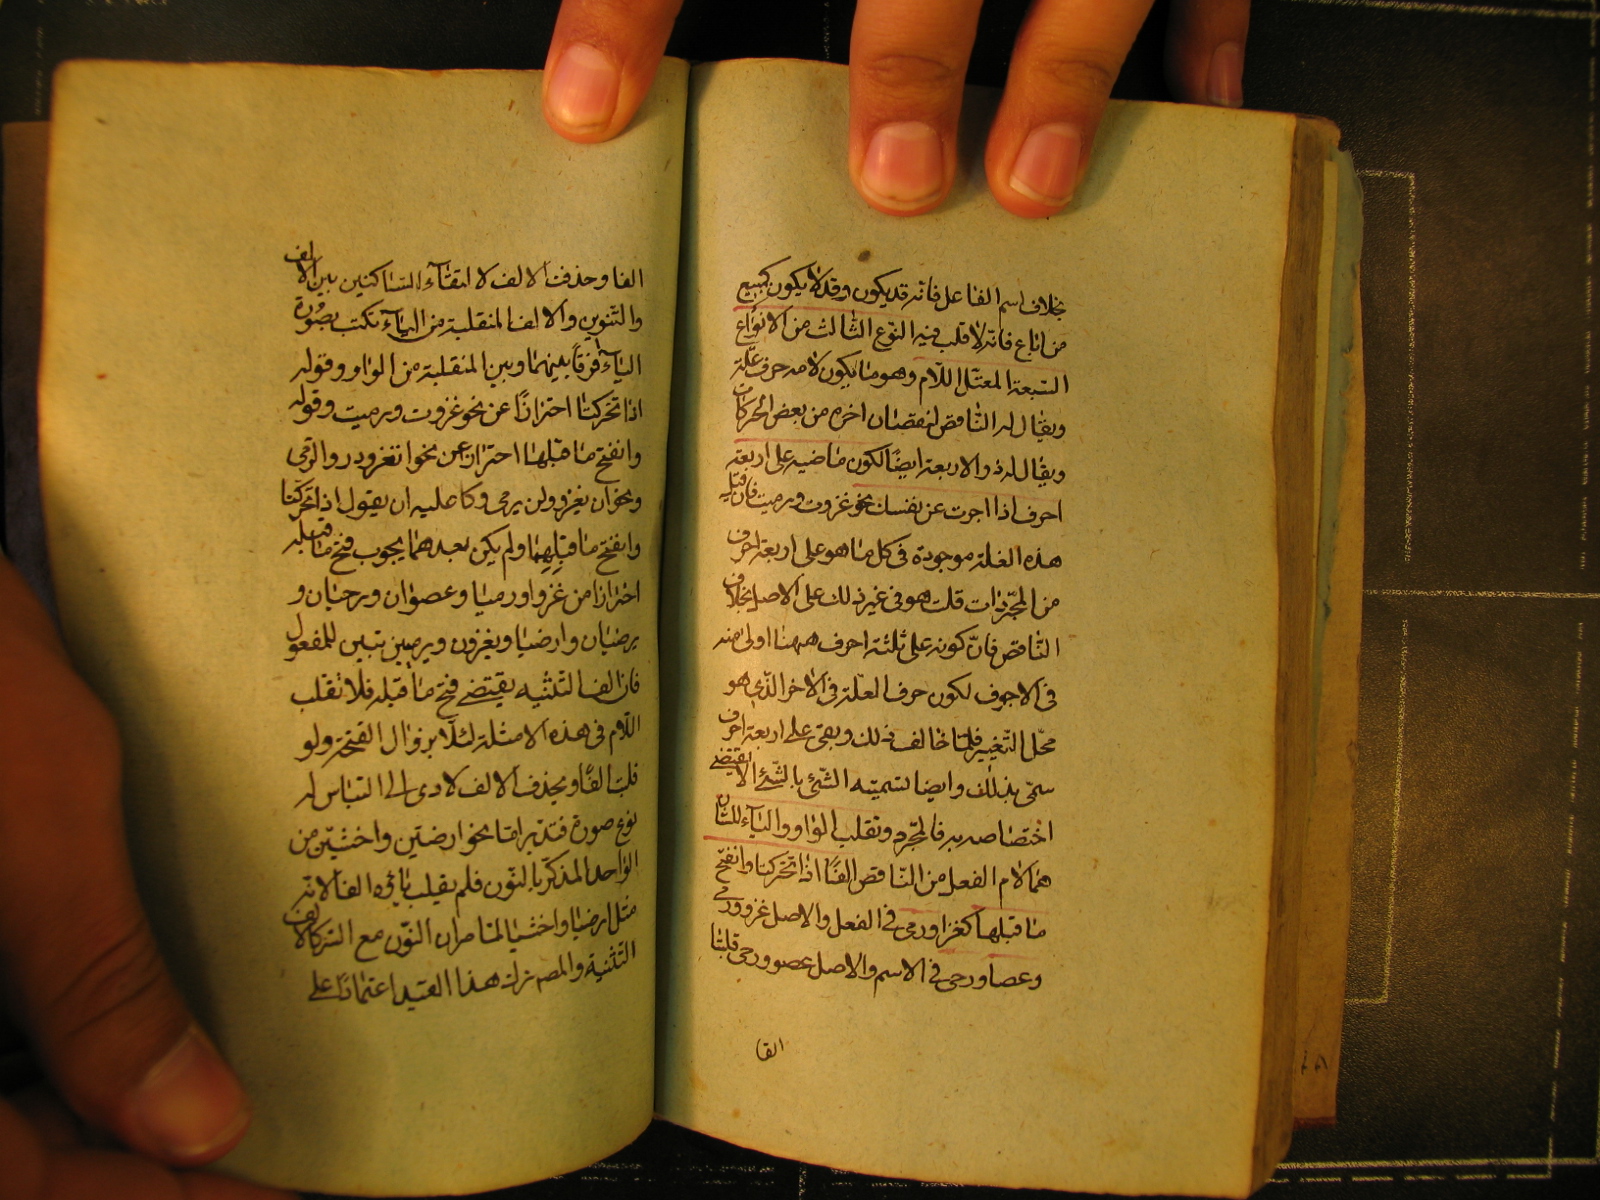 بخلاف اسم الفاعل فانه قد يكون وقد لا يكون كمبيع
من اباع فانه لا قلب فيه النوع الثالث من الانواع
السبعة المعتل اللام وهو ما يكون لامه حرف علة
ويقال له الناقص لنقصان اخره من بعض الحركات
ويقال له ذو الاربعة ايضا لكون ماضيه على اربعة
احرف اذا اخبرت عن نفسك نحو غزوت ورميت فان قيل
هذه العلة موجودة في كل ما هو على اربعة احرف
من المجردات قلت هو في غير ذلك على الاصل بخلاف
الناقص فان كونه على ثلثة احرف ههنا اولى منه
في الاجوف لكون حرف العلة في الاخر الذي هو
محل التغيير فلما خالف ذلك وبقي على اربعة احرف
سمي بذلك وايضا تسمية الشئ بالشئ لا يقتضي
اختصاصه به فالمجرد وتقلب الواو والياء اللتان
هما لام الفعل من الناقص الفا اذا تحركتا وانفتح
ما قبلهما كغزا ورمى في الفعل والاصل غزو ورمي
وعصا ورحى في الاسم والاصل عصو ورحي قلبتا
الفا
الفا وحذفت الالف لالتقاء الساكنين بين الالف
والتنوين والالف المنقلبة من الياء تكتب بصورة
الياء فرقا بينهما وبين المنقلبة من الواو وقوله
اذا تحركتا احترازا عن نحو غزوت ورميت وقوله
وانفتح ما قبلهما احتراز عن نحو الغزو والرمي
ونحو ان يغزو ولن يرمي وكان عليه ان يقول اذا تحركتا
وانفتح ما قبلهما ولم يكن بعدهما يجوب فتح ما قبله
احترازا من غزوا ورميا وعصوان ورحيان و
يرضيان وارضيا ويغزون ويرميين تبين للمفعول
فان الف التثنية يقتضي فتح ما قبله فلا تقلب
اللام في هذه الامثلة لئلا يزوال الفتحة ولو
قلبت الفا ويحذف الالف لادى الى التباس له
نوع صورة فتدبر اما نحو ارضين واخشين من
الواحد المذكر بالنون فلم يقلب ياؤه الفا لانه
مثل ارضيا واخشيا لما مر ان النون مع المستتر كالف
التثنية والمص ترك هذا القيد اعتمادا على